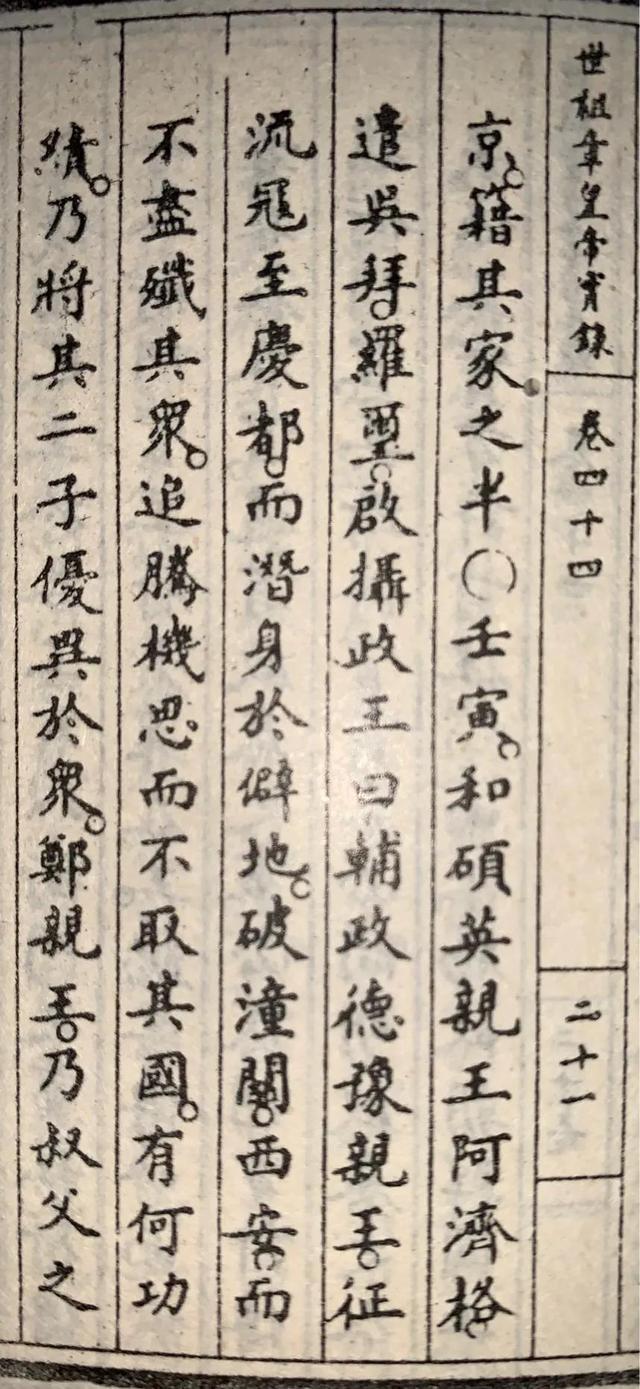 世祖章皇帝實錄 卷四十四 二十一
京。籍其家之半〇壬寅。和碩英親王阿濟格。
遣吳拜。羅璽。啟攝政王曰輔政德豫親王。征
流寇至慶都。而潛身於僻地。破潼關。西安。而
不盡殲其眾。追騰機思而不取其國。有何功
績。乃將其二子優異於眾。鄭親王。乃叔父之